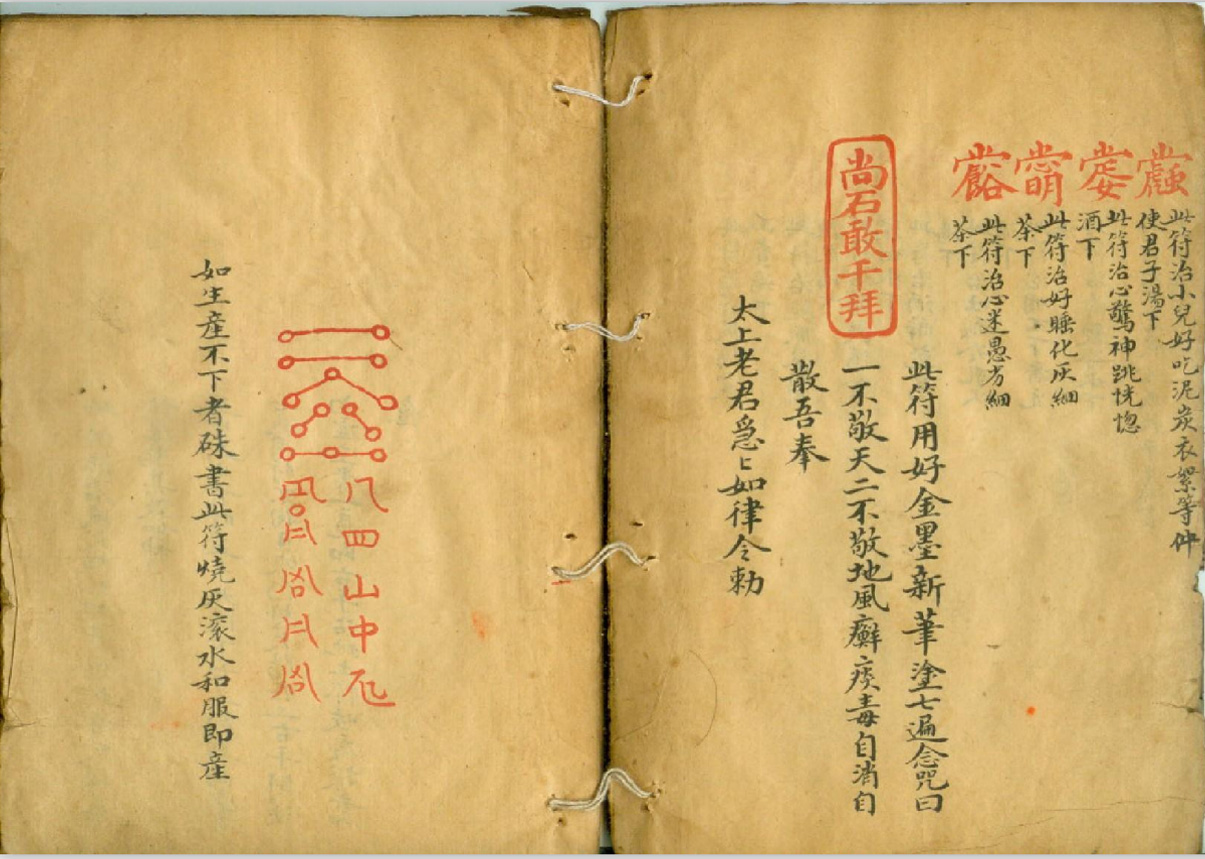 此符治小兒好吃泥炭衣絮等件
使君子湯下
此符治心驚神跳恍惚
酒下
此符治好睡化灰細
茶下
此符治心迷愚方細
茶下
尚石敢千拜
此符用好金墨新筆塗七遍念咒曰
一不敬天二不敬地風癬痰毒自消自
散吾奉
太上老君急々如律令勅
八四山中
如生產不下者硃書此符燒灰滾水和服即產